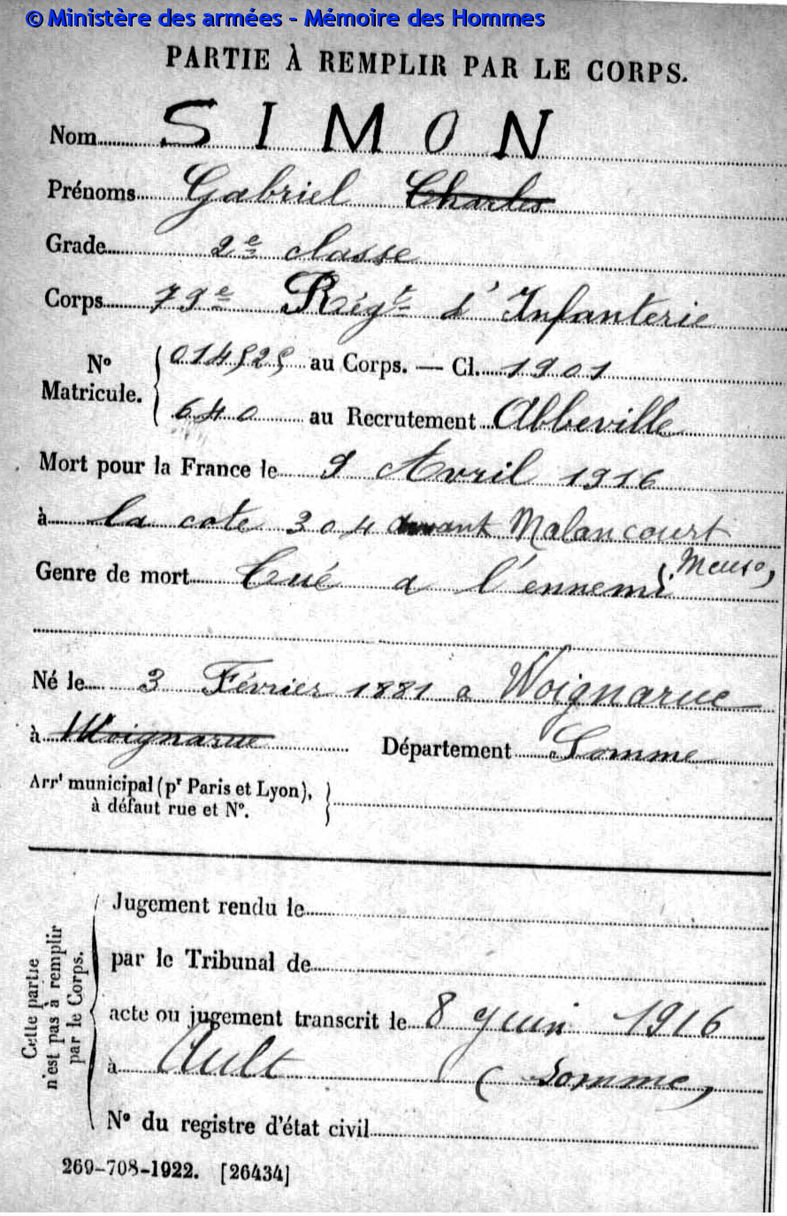 © Ministère des armées - Mémoire des Hommes
PARTIE À REMPLIR PAR LE CORPS.
Nom SIMON
Prénoms Gabriel Charles
Grade 2e classe
Corps 79e Régt d'Infanterie
No Matricule. 014525 au Corps. — Cl. 1901
640 au Recrutement Abbeville
Mort pour la France le 9 Avril 1916
à la cote 304 devant Malancourt
(Meuse)
Genre de mort Tué a l'ennemi
Né le 3 Février 1881 a Woignarue
à Woignarue Département Somme
Arrt municipal (pr Paris et Lyon),
à défaut rue et No.
Cette partie
n'est pas à remplir
par le Corps.
Jugement rendu le
par le Tribunal de
acte ou jugement transcrit le 8 Juin 1916
à Ault (Somme)
No du registre d'état civil
269-708-1922. [26434]